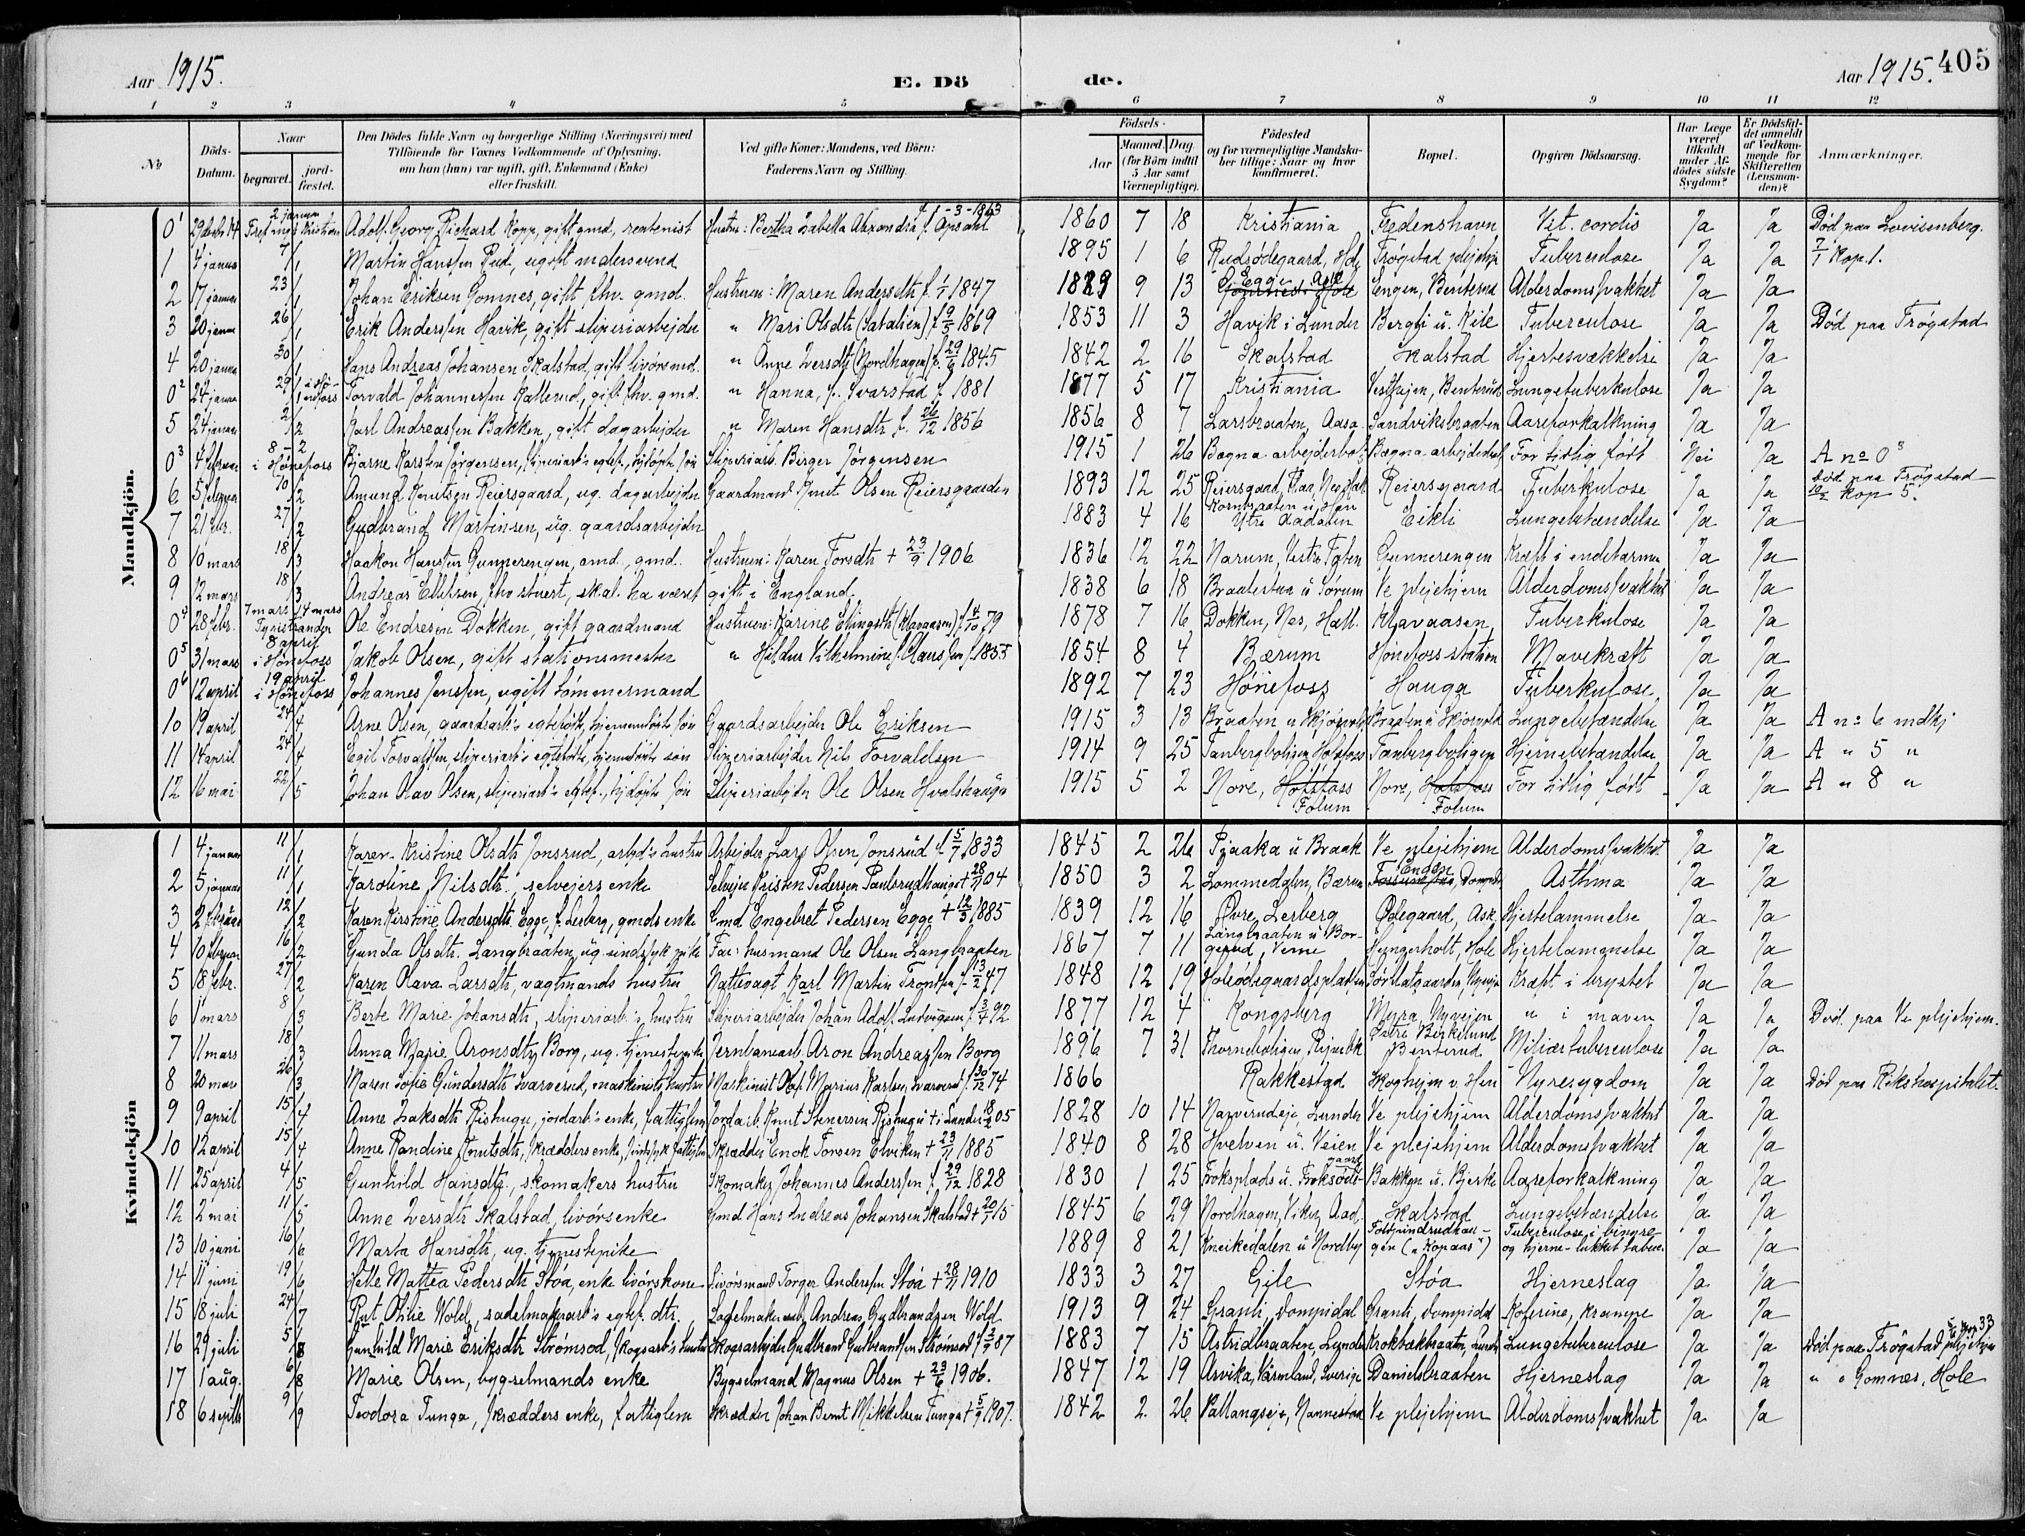 Aar 1915. E. Dö de. Aar 1915. 405
1 2 3 4 5 6 7 8 9 10 11 12
No
Döds-Datum.
Naar
begravet.
jordfæstet.
Den Dödes fulde Navn og borgerlige Stilling (Næringsvei) med
Tilföiende for Voxnes Vedkommende af Oplysning,
om han (hun) var ugift, gift, Enkemand (Enke)
eller fraskilt.
Ved gifte Koner: Mandens, ved Börn:
Faderens Navn og Stilling.
Födsels-
Aar
Maaned. Dag
(for Börn indtil
5 Aar samt
Værnepligtige).
Födested
og for værnepligtige Mandskaber tillige: Naar og hvor
konfirmeret.
Bopæl.
Opgiven Dödsaarsag.
Har Læge
været
tilkaldt
under Afdödes sidste
Sygdom?
Er Dödsfaldet anmeldt
af Vedkommende for
Skifteretten
(Lensmanden)?
Anmærkninger.
Mandkjön.
0¹ Adolf Georg Richard Kopp, gift gmd, rentenist Hustru: Bertha Isabella Alexandra f. Opsahl 1860 7 18 Kristiania Fredenshavn Vit. cordis Ja Ja Död paa Lovisenberg.
1 4 januar 7/1 Martin Hanssen Rud, ugift indersvend 1895 1 6 Rudsödegaard, Hole Trøgstad plejehj. Tuberculose Ja Ja 7/1 kop. 1.
2 17 januar 23/1 Johan Eriksen Gomnes, gift, fhv. gmd. Hustruen: Maren Andersdtr f. 1847 1829 9 13 Eggi Ask Engen, Benterud Alderdomssvakhet Ja Ja
3 20 januar 26/1 Erik Anderssen Havik, gift sliperiarbejder " Mari Olsdtr f. 9/5 1869 1853 11 3 Havik i Lunder Tuberculose Ja Ja Død paa Trøgstad
4 20 januar 30/1 Hans Andreas Johansen Skalstad, gift livörsmd. " Anne Iversdtr (Nordhagen) f. 29/6 1845 1842 2 16 Skalstad Skalstad Hjertesvækkelse Ja Ja
0² 24 januar 29/1 Torvald Johannessen Kallerud, gift fhv. gmd. " Hanna, f. Svarstad f. 1881 1877 5 17 Kristiania Benterud Lungetuberkulose Ja Ja
5 24 januar 2/2 Karl Andreassen Bakken, gift dagarbejder " Maren Hansdtr f. 26/12 1856 1856 8 7 Larsbraaten, Aasa Sandviksbraaten Aareforkalkning Ja Ja
0³ 4 februar 8-2 i Hønefoss Bjarne Karsten Jörgensen, sliperiarb.s egtef. hjdöpte sön Sliperiarb. Birger Jörgensen 1915 1 26 Bægna arbejderbol. Bægna arbejderbol. For tidlig født Nei Ja A no 0³
6 5 februar 10/2 Amund Knutsen Reiersgaard, ug. dagarbejder Gaardmand Knut Olsen Reiersgaarden 1893 12 25 Reiersgaard, Flaa, Nes, Hall. Reiersgaard Tuberkulose Ja Ja Død paa Trøgstad 10/2 kop 5.
7 21 febr. 27/2 Gudbrand Martinsen, ug. gaardsarbejder 1883 4 16 Kornbraaten u. Hen Ytre Aadalen Eikli Lungebetændelse Ja Ja
8 10 mars 18/3 Haakon Hanssen Gunnerengen, gmd. Hustruen: Karen Torsdtr + 23/9 1906 1836 12 22 Narum, Vestre Toten Gunnerengen Kræft i endetarmen Ja Ja
9 12 mars 18/3 Andreas Ellefsen, fhv stuert, skal ha været gift i England. 1838 6 18 Braatestua u Sørum Ve plejehjem Alderdomssvakhet Ja Ja
0⁴ 28 febr. 7 mars 14 mars Tyristranden Ole Endresen Dokken, gift gaardmand Hustruen: Karine (Klavaasen) f. 4/10 79 1878 7 16 Dokken, Nes, Hall. Klavaasen Tuberkulose Ja Ja
0⁵ 31 mars 8 april i Hønefoss Jakob Olsen, gift stationsmester " Hilda Vilhelmine f. Claussen f. 1855 1854 8 4 Bærum Hönefoss station Mavekræft Ja Ja
0⁶ 12 april 19 april i Hønefoss Johannes Jenssen, ugift tömmermand 1892 7 23 Hønefoss Hauga Tuberkulose Ja Ja
10 19 april 24/4 Arne Olsen, gaardsarb.s egtefødte, hjemmedøpte sön Gaardsarbejder Ole Eriksen 1915 3 13 Braaten u Skjörvold Braaten u Skjörvold Lungebetændelse Ja Ja A no 6 mdkj
11 14 april 24/4 Egil Torvaldsen, sliperiarb.s egtefødte, hjemmedöpte sön Sliperiarbejder Nils Torvaldsen 1914 9 25 Tanbergboligen Hofsfoss Tanbergboligen Hjernebetændelse Ja Ja A " 5 "
12 16 mai 22/5 Johan Olav Olsen, sliperiarb.s egtef. hjdøpte sön Sliperiarbejder Ole Olsen Hvalshaugen 1915 5 2 Nore, Hofsfoss Follum Nore, Hofsfoss Follum For tidlig født Ja Ja A " 8 "
Kvindekjön
1 4 januar 11/1 Karen Kristine Olsdtr Jonsrud, arbd's hustru Arbejder Lars Olsen Jonsrud f. 5/7 1833 1845 2 26 Pjaaka u Braak Ve plejehjem Alderdomssvakhet Ja Ja
2 5 januar 11/1 Karoline Nilsdtr, selvejers enke Selvejer Kristen Pedersen Paulsrudhaugen + 28/11 04 1850 3 2 Lommedalen, Bærum Engen Asthma Ja Ja
3 2 februar 12/2 Karen Kirstine Andersdtr Egge f. Lerberg, gmds enke Gmd Engebret Pedersen Egge + 12/5 1885 1839 12 16 Øvre Lerberg Ødegaard, Ask Hjertelammelse Ja Ja
4 10 februar 16/2 Gunda Olsdtr. Langbraaten, ug. sindssyk pike Far: husmand Ole Olsen Langbraaten 1867 7 11 Langbraaten u Borgerud, Veme Hungerholt, Hole Hjertelammelse Ja Ja
5 18 febr. 27/2 Karen Olava Larsdtr, vagtmands hustru Nattevagt Karl Martin Tronssen f. 13/2 47 1848 12 19 Holeødegaardspladsen Kræft i brystet Ja Ja
6 1 mars 8/3 Berte Marie Johansdtr, sliperiarb.s hustru Sliperiarbejder Johan Adolf Ludvigsen f. 3/4 92 1877 12 4 Kongsberg Myra, Nyvejen " i maven Ja Ja Død paa Ve plejehjem.
7 11 mars 18/3 Anna Marie Aronsdtr Borg, ug. tjenestepike Jernbanearb. Aron Andreassen Borg 1896 7 31 Østre Birkelund Benterud Miliærtuberculose Ja Ja
8 20 mars 26/3 Maren Sofie Gundersdtr Svarverud, maskinists hustru Maskinist Olaf Marius Karlsen Svarverud f. 30/12 74 1866 Rakkestad Skoghejm v. Hen Nyresygdom Ja Ja Død paa Rikshospitalet.
9 9 april 15/4 Anne Isaksdtr Rishugu, jordarb's enke, fattiglem Jordarb. Knut Stenersen Rishugu + i Lunder 05 1828 10 14 Narverudeje, Lunder Ve plejehjem Alderdomssvakhet Ja Ja
10 12 april 15/4 Anne Randine Knutsdtr, skrædders enke, sindssyk fattiglem Skrædder Enok Torsen Elviken + 23/11 1885 1840 8 28 Hvelven u. Veien Ve plejehjem Alderdomssvakhet Ja Ja
11 25 april 4/5 Gunhild Hansdtr., skomakers hustru Skomaker Johannes Anderssen f. 29/12 1828 1830 1 25 Froksplads u. Froksødegaard Bakken u. Bjerke Aareforkalkning Ja Ja
12 2 mai 11/5 Anne Iversdtr Skalstad, livörsenke Gmd Hans Andreas Johansen Skalstad + 20/1 15 1845 6 29 Nordhagen, Viker, Aad. Skalstad Lungebetændelse Ja Ja
13 10 juni 16/6 Marta Hansdtr, ug. tjenestepike 1889 8 21 Kneikedalen u Nordby ("Kopaas") Tuberculose i bingre og hjerne - lukket Ja Ja
14 11 juni 19/6 Helle Mattea Pedersdtr Støa, enke livörskone Livörsmand Torger Anderssen Støa + 28/11 1910 1833 3 27 Gile Støa Hjerneslag Ja Ja
15 18 juli 24/7 Rut Otilie Wold, sadelmakerarb's egtef. dtr. Sadelmakerarb. Andreas Gudbrandsen Wold 1913 9 24 Granli, Dompidal Granli, Dompidal Kolerine, krampe Ja Ja
16 29 juli 5/8 Gunhild Marie Eriksdtr Strømsod, skogsarb's hustru Skogsarbejder Gudbrand Gulbrandsen Strømsod f. 3/9 87 1883 7 15 Astridbraaten, Lunder Krokbækbraaten, Lunder Lungetuberculose Ja Ja Død paa Trøgstad plejehjem 5/8 kop 33
17 1 aug. 6/8 Marie Olsen, bygselmands enke Bygselmand Magnus Olsen + 23/6 1906. 1847 12 19 Arvika, Värmland, Sverige Danielsbraaten Hjerneslag Ja Ja " " Gomnes, Hole
18 6 septbr 9/9 Teodora Tunga, skrædders enke, fattiglem Skrædder Johan Bernt Mikkelsen Tunga + 5/9 1907. 1842 2 26 Vallangseje, Nannestad Ve plejehjem Alderdomssvakhet Ja Ja